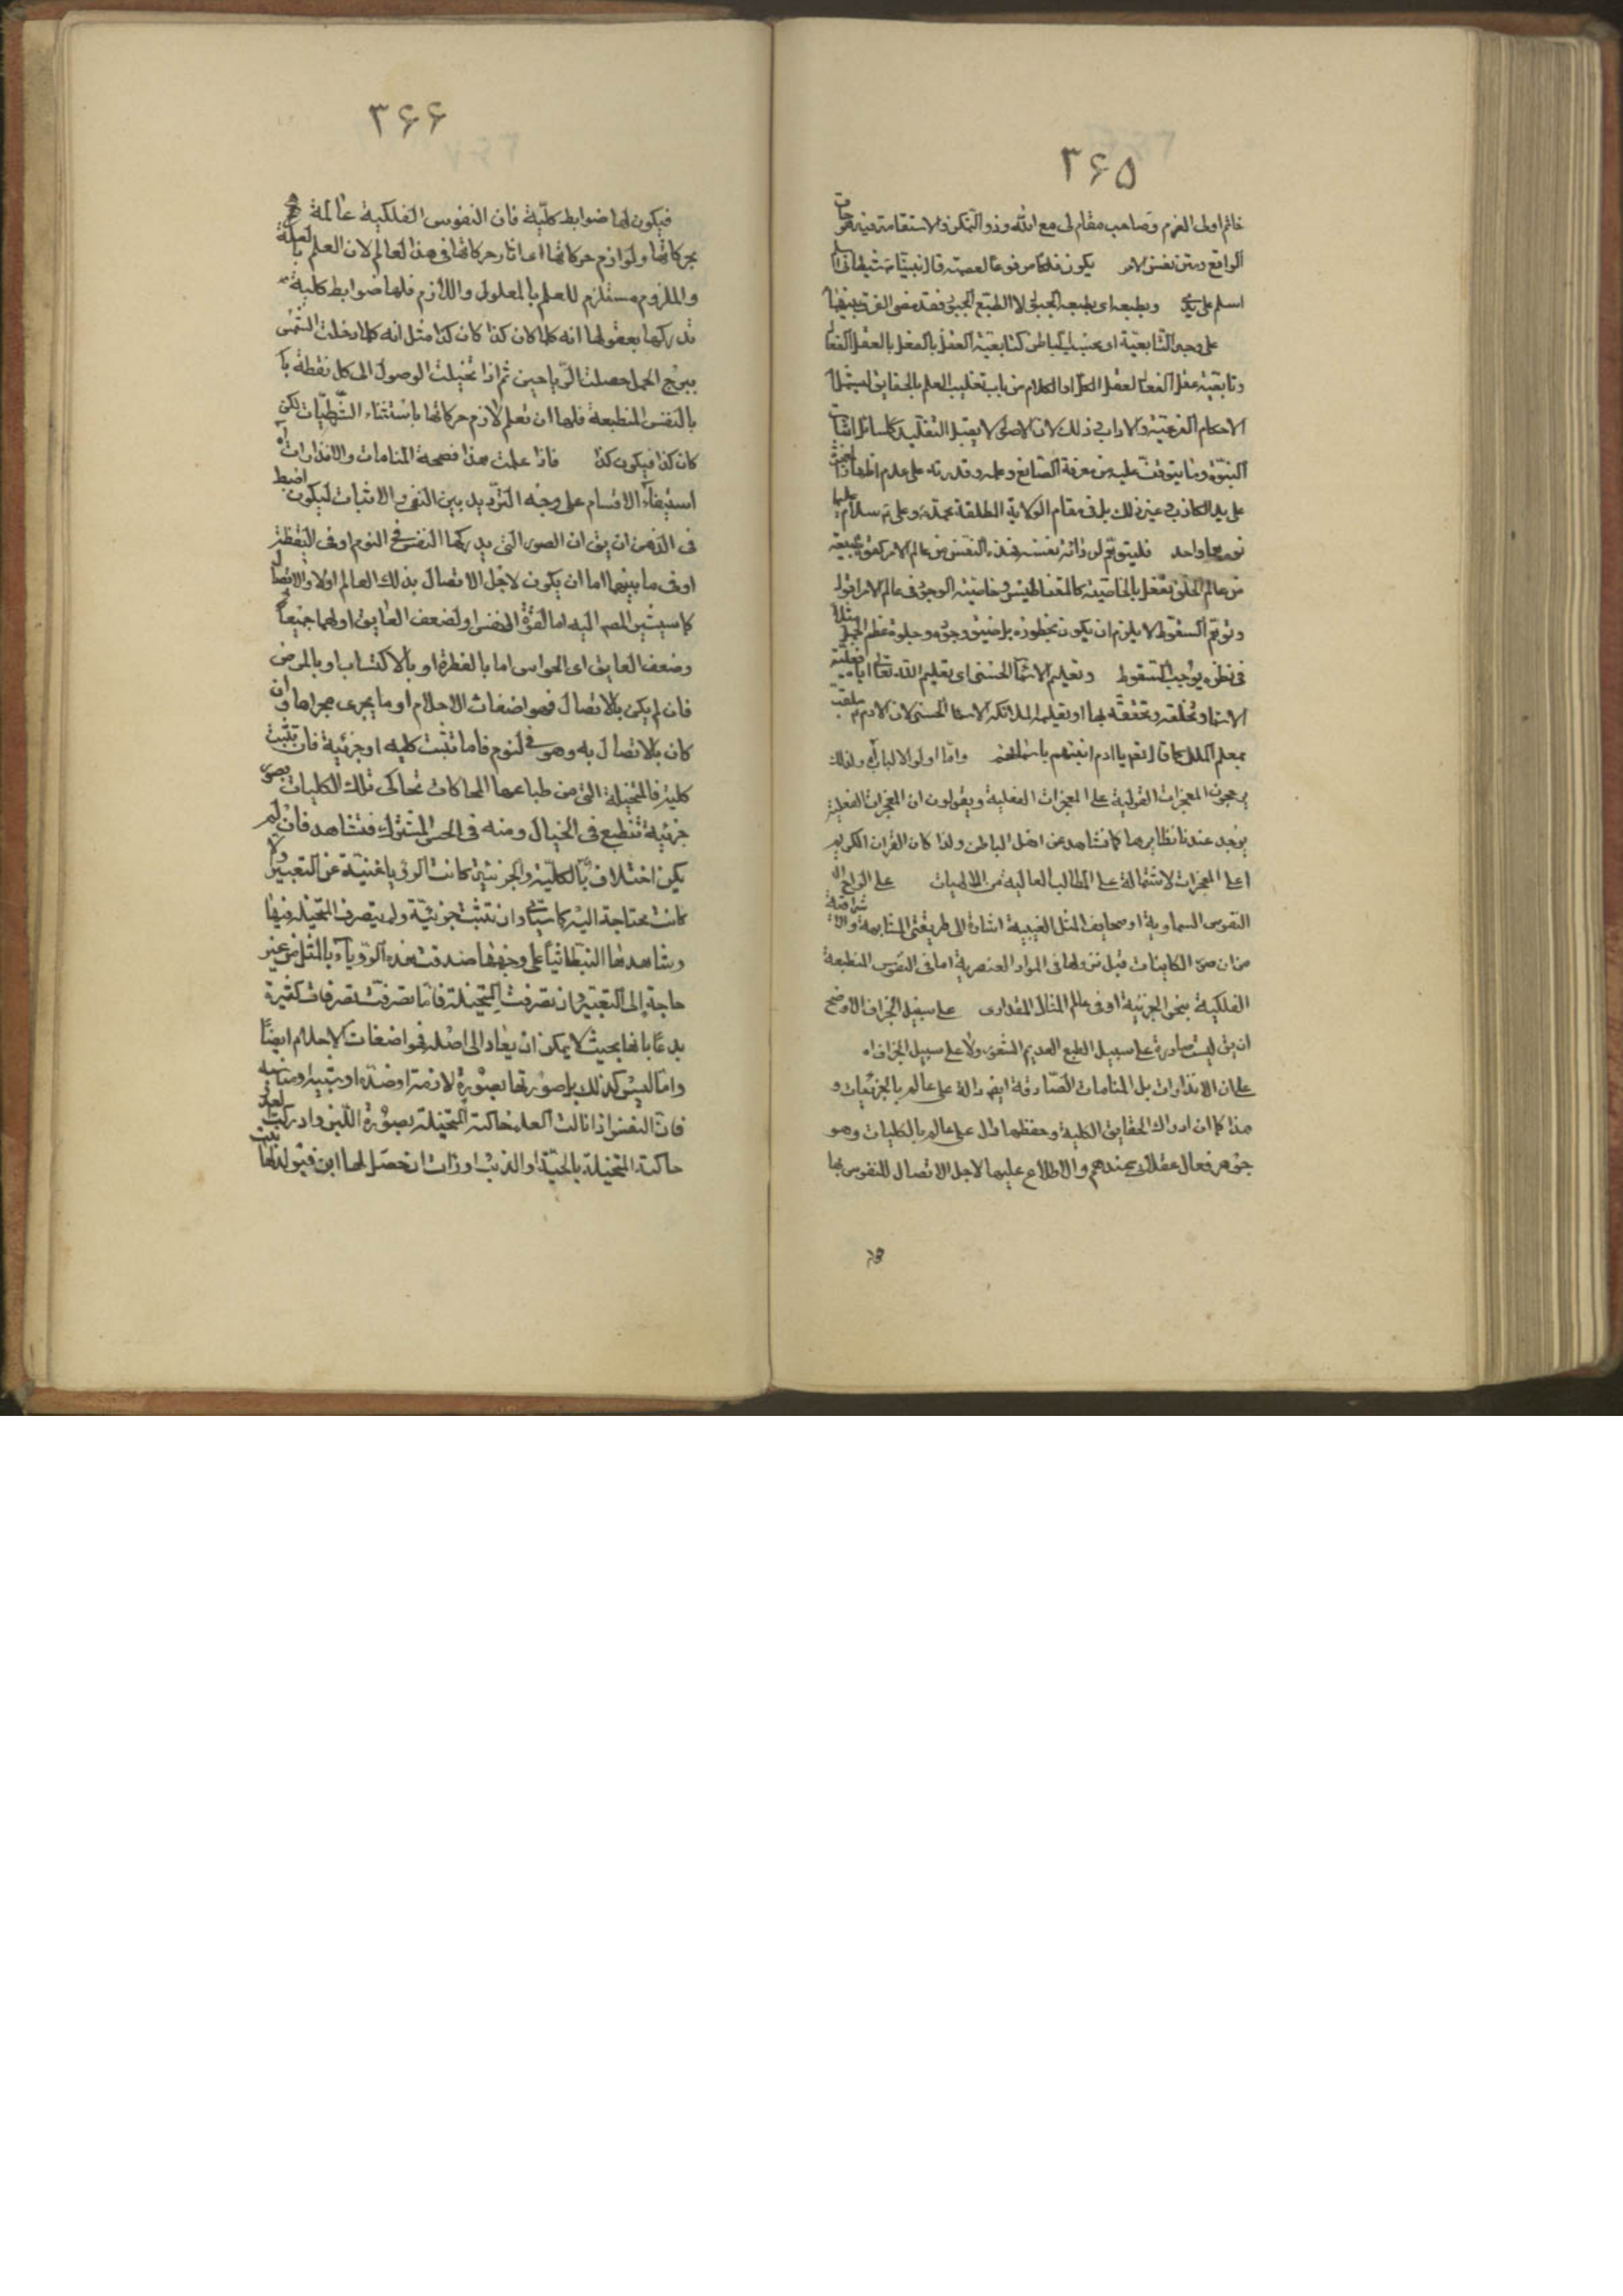 ٣۶۵
خاتم اولى العزم وصاحب مقام لى مع الله وذو التمكن والاستقامة فيه هو حاق
الواقع ومتن نفس الامر يكون فلكا مرفوعا لعصمته قال نبينا ص شيطانى
اسلم على يدى وبطبعه اى بطبعه الجبلى لا الطبع الجبى فقد مضى الفرق بينهما
على وجه التابعية اى بحسب الباطن كتابعية العقل بالفعل بالعقل الفعال
وتابعية عقل الفعال لعقل الكل او الكلام من باب تغليب العلم بالحقايق ليشمل
الاحكام الفرعية والاداب فى ذلك لان الاصول لا يقبل التقليد كمسائل اثبات
النبوة وما يتوقف عليه من معرفة الصانع وعلمه وقدرته على عدم اظهار
على يد الكاذب وغير ذلك بل فى مقام الولاية المطلقة محمد ص وعلى ع سلام عليهما
نورهما واحد فليتوهم لو ذاته نفسه هذه النفس من عالم الامر كقوى طبيعة
من عالم الخلق تفعل بالخاصية كالمغناطيس وخاصية الوجود فى عالم الامر اقول
وتوهم السقوط لا يلزم ان يكون بخطوره بل ضيق وجوده وجلوة عظم الجبل مثلا
فى نظره يوجب السقوط وتعليم الاسماء الحسنى اى تعليم الله تعالى اياه
الاسماء وتخلقه وتحققه بها او تعليمه الملائكة الاسماء الحسنى لان الادم ملقب
بمعلم الملك كما قال تعالى يا ادم انبئهم باسمائهم واما اولوا الالباب ولذلك
يرجحون المعجزات القولية على المعجزات الفعلية ويقولون ان المعجزات الفعلية
يوجد عندنا نظايرها كما نشاهد عن اهل الباطن ولذا كان القران الكريم
اعلى المعجزات لاشتماله على المطالب العالية من الالهيات على الواح
النفوس السماوية او صحايف المثل الغيبية اشارة الى طريقتى المشائية والاشراقية
من ان صور الكاينات قبل نزولها فى المواد العنصرية اما فى النفوس المنطبعة
الفلكية بنحو الجزئية او فى عالم المثال المقدارى على سبيل الجزاف الاوضح
ان يق ليست صادرة على سبيل الطبع العديم الشعور ولا على سبيل الجزاف اه
على ان الانذارات بل المنامات الصادقة ايض دالة على عالم بالجزئيات و
هذا كما ان ادراك الحقايق الكلية وحفظها دل على عالم بالكليات وهو
جوهر فعال عقلانى عندهم والاطلاع عليها لاجل الاتصال للنفوس بها
٣۶۶
فيكون لها ضوابط كلية فان النفوس الفلكية عالمة
بحركاتها ولوازم حركاتها اى اثار حركاتها فى هذا العالم لان العلم بالعلة
والملزوم مستلزم للعلم بالمعلول واللازم فلها ضوابط كلية
تدركها بعقولها انه كلما كان كذا كان كذا مثل انه كلما دخلت الشمس
ببرج الحمل حصلت الرياحين ثم اذا تخيلت الوصول الى كل نقطة
بالنفس المنطبعة فلها ان تعلم لازم حركاتها باستثناء الشرطيات لكن
كان كذا فيكون كذا فاذا علمت هذا فصحة المنامات والانذارات اه
استيفاء الاقسام على وجه الترديد بين النفى والاثبات ليكون اضبط
فى الذهن ان يق ان الصور التى يدركها النفس فى النوم او فى اليقظة
او فى ما بينهما اما ان يكون لاجل الاتصال بذلك العالم اولا والاتصال
كما سيشير المصه اليه اما لقوة النفس او لضعف العايق او لهما جميعا
وضعف العايق اى الحواس اما بالفطرة او بالاكتساب او بالمرض
فان لم يكن بالاتصال فهو اضغاث الاحلام او ما يجرى مجراها وان
كان بالاتصال به وهو فى النوم فاما تثبت كلية او جزئية فان تثبت
كلية فالمتخيلة التى من طباعها المحاكات تحاكى تلك الكليات بصور
جزئية تنطبع فى الخيال ومنه فى الحس المشترك فتشاهد فان لم
يكن اختلاف بالكلية والجزئية كانت الرؤيا غنية عن التعبير والا
كانت محتاجة اليه كما سيأتى وان تثبت جزئية ولم يتصرف المتخيلة فيها
ويشاهدها على وجهها صدقت هذه الرؤيا بالمثل من غير
حاجة الى التعبير وان تصرفت المتخيلة فاما تصرفت تصرفات كثيرة
بدعابانها بحيث لا يمكن ان يعاد الى اصله فهو اضغاث الاحلام ايضا
واما ليس كذلك بل صورتها بصورة لازمة او ضده او شبيه او مناسبه
فان النفس اذا نالت العلم حاكته المتخيلة بصورة اللبن وادركت العدو
حاكته المتخيلة بالحية او الذيب او رات ان حصل لها ابن فيتولد لها بنت